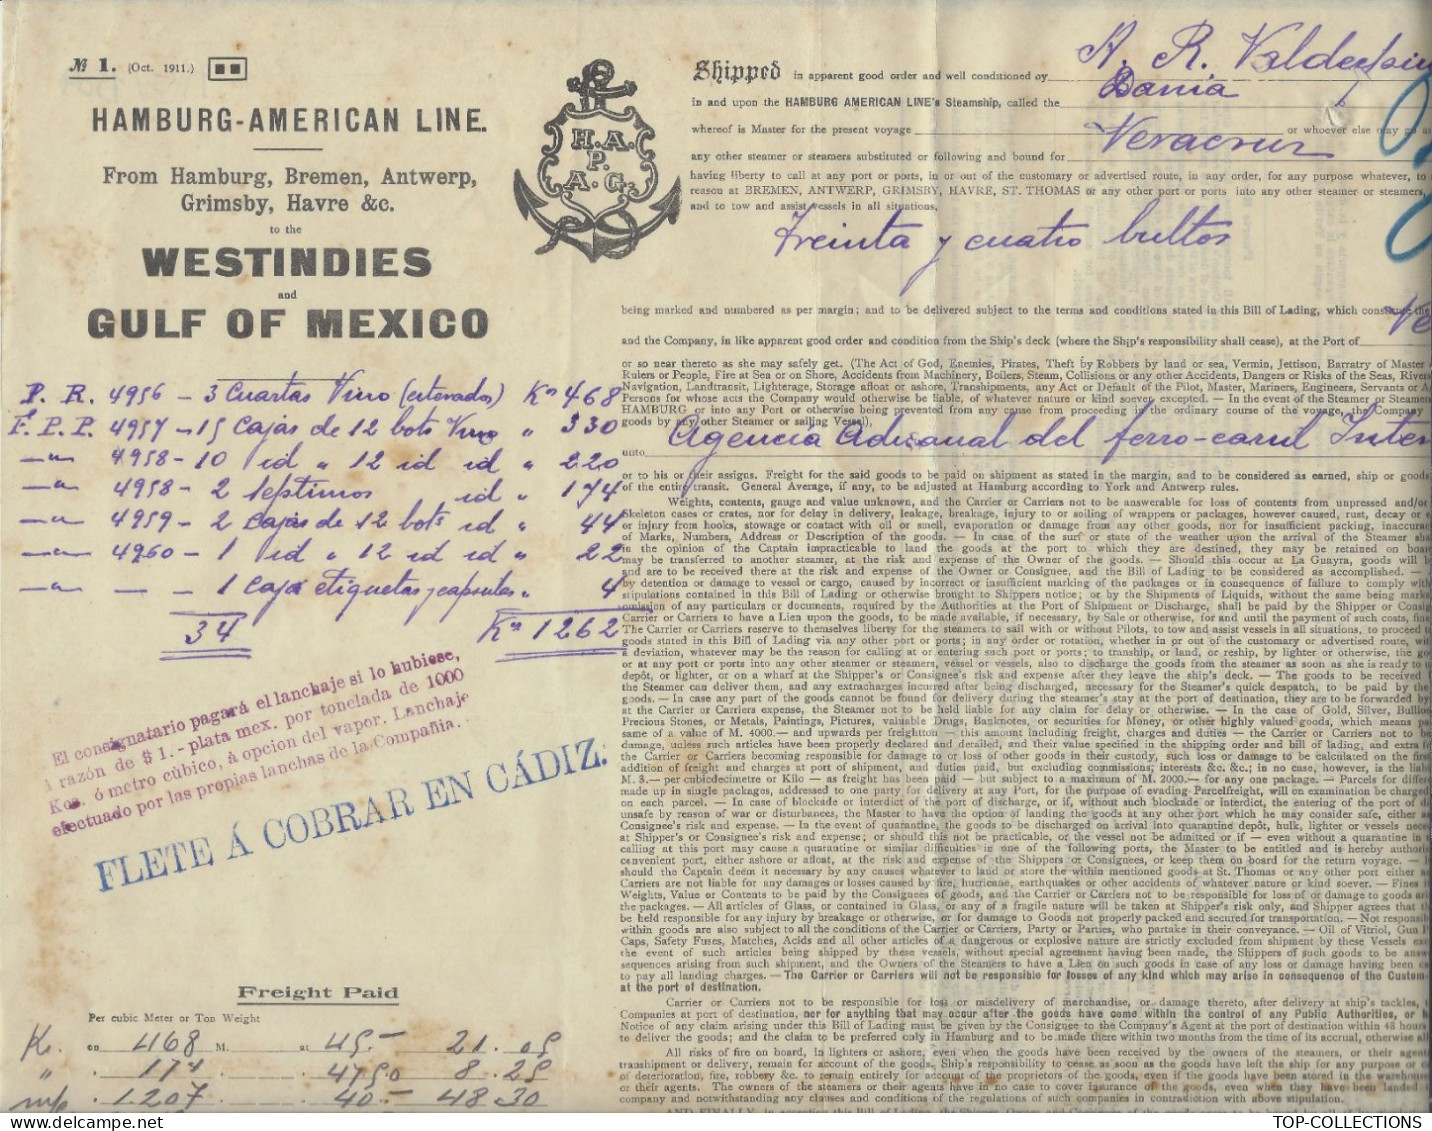 № 1. (Oct. 1911.)
HAMBURG-AMERICAN LINE.
From Hamburg, Bremen, Antwerp,
Grimsby, Havre &c.
to the
WESTINDIES
and
GULF OF MEXICO
H. A.
P.
A. G.
P. R. 4956 - 3 Cuartas Vino (esterados) Kos 468
F. P. P. 4957 - 15 Cajas de 12 bots Vino " 330
—"— 4958 - 10 id " 12 id id " 220
—"— 4958 - 2 Septimos id " 174
—"— 4959 - 2 Cajas de 12 bots id " 44
—"— 4960 - 1 id " 12 id id " 22
—"— — - 1 Caja etiquetas y capsulas " 4
34 Kos 1262
El consignatario pagará el lanchaje si lo hubiese,
á razón de $ 1.- plata mex. por tonelada de 1000
Kos. ó metro cúbico, á opcion del vapor. Lanchaje
efectuado por las propias lanchas de la Compañia.
FLETE Á COBRAR EN CÁDIZ.
Freight Paid
Per cubic Meter or Ton Weight
K. on 468 M. at 45.- 21.05
" 174 4750 8.25
m/p 1.207 40.- 48.30
Shipped in apparent good order and well conditioned by A. R. Valdespin
in and upon the HAMBURG AMERICAN LINE's Steamship, called the Dania
whereof is Master for the present voyage or whoever else may go as
any other steamer or steamers substituted or following and bound for Veracruz
having liberty to call at any port or ports, in or out of the customary or advertised route, in any order, for any purpose whatever, to
reason at BREMEN, ANTWERP, GRIMSBY, HAVRE, ST. THOMAS or any other port or ports into any other steamer or steamers,
and to tow and assist vessels in all situations,
Treinta y cuatro bultos
being marked and numbered as per margin; and to be delivered subject to the terms and conditions stated in this Bill of Lading, which constitute the
and the Company, in like apparent good order and condition from the Ship's deck (where the Ship's responsibility shall cease), at the Port of Ve
or so near thereto as she may safely get. (The Act of God, Enemies, Pirates, Theft by Robbers by land or sea, Vermin, Jettison, Barratry of Master
Rulers or People, Fire at Sea or on Shore, Accidents from Machinery, Boilers, Steam, Collisions or any other Accidents, Dangers or Risks of the Seas, Rivers
Navigation, Landtransit, Lighterage, Storage afloat or ashore, Transhipments, any Act or Default of the Pilot, Master, Mariners, Engineers, Servants or
Persons for whose acts the Company would otherwise be liable, of whatever nature or kind soever excepted. — In the event of the Steamer or Steamers
HAMBURG or into any Port or otherwise being prevented from any cause from proceeding in the ordinary course of the voyage, the Company
goods by any other Steamer or sailing Vessel),
unto Agencia Aduanal del ferro-carril Inter
or to his or their assigns. Freight for the said goods to be paid on shipment as stated in the margin, and to be considered as earned, ship or goods
of the entire transit. General Average, if any, to be adjusted at Hamburg according to York and Antwerp rules.
Weights, contents, gauge and value unknown, and the Carrier or Carriers not to be answerable for loss of contents from unpressed and/or
Skeleton cases or crates, nor for delay in delivery, leakage, breakage, injury to or soiling of wrappers or packages, however caused, rust, decay or
or injury from hooks, stowage or contact with oil or smell, evaporation or damage from any other goods, nor for insufficient packing, inaccurac
of Marks, Numbers, Address or Description of the goods. — In case of the surf or state of the weather upon the arrival of the Steamer
in the opinion of the Captain impracticable to land the goods at the port to which they are destined, they may be retained on board
may be transferred to another steamer, at the risk and expense of the Owner of the goods. — Should this occur at La Guayra, goods will
and are to be received there at the risk and expense of the Owner or Consignee, and the Bill of Lading to be considered as accomplished. —
by detention or damage to vessel or cargo, caused by incorrect or insufficient marking of the packages or in consequence of failure to comply with
stipulations contained in this Bill of Lading or otherwise brought to Shippers notice; or by the Shipments of Liquids, without the same being marked
omission of any particulars or documents, required by the Authorities at the Port of Shipment or Discharge, shall be paid by the Shipper or Consig
Carrier or Carriers to have a Lien upon the goods, to be made available, if necessary, by Sale or otherwise, for and until the payment of such costs,
The Carrier or Carriers reserve to themselves liberty for the steamers to sail with or without Pilots, to tow and assist vessels in all situations, to proceed
goods stated in this Bill of Lading via any other port or ports; in any order or rotation, whether in or out of the customary or advertised route,
a deviation, whatever may be the reason for calling at or entering such port or ports; to tranship, or land, or reship, by lighter or otherwise, the
or at any port or ports into any other steamer or steamers, vessel or vessels, also to discharge the goods from the steamer as soon as she is ready to
depôt, or lighter, or on a wharf at the Shipper's or Consignee's risk and expense after they leave the ship's deck. — The goods to be received
the Steamer can deliver them, and any extracharges incurred after being discharged, necessary for the Steamer's quick despatch, to be paid by the
goods. — In case any part of the goods cannot be found for delivery during the steamer's stay at the port of destination, they are to be forwarded by
at the Carrier or Carriers expense, the Steamer not to be held liable for any claim for delay or otherwise. — In the case of Gold, Silver, Bullion
Precious Stones, or Metals, Paintings, Pictures, valuable Drugs, Banknotes, or securities for Money, or other highly valued goods, which means
same of a value of M. 4000.— and upwards per freightton — this amount including freight, charges and duties — the Carrier or Carriers not to
damage, unless such articles have been properly declared and detailed, and their value specified in the shipping order and bill of lading, and extra
the Carrier or Carriers becoming responsible for damage to or loss of goods other in their custody, such loss or damage to be calculated on the first
addition of freight and charges at port of shipment, and duties paid, but excluding commissions, interests &c. &c.; in no case, however, is the
M. 3.— per cubicdecimetre or Kilo — as freight has been paid — but subject to a maximum of M. 2000.— for any one package. — Parcels for differ
made up in single packages, addressed to one party for delivery at any Port, for the purpose of evading Parcelfreight, will on examination be charged
on each parcel. — In case of blockade or interdict of the port of discharge, or if, without such blockade or interdict, the entering of the port of
unsafe by reason of war or disturbances, the Master to have the option of landing the goods at any other port which he may consider safe, either
Consignee's risk and expense. — In the event of quarantine, the goods to be discharged on arrival into quarantine depôt, hulk, lighter or vessels
at Shipper's or Consignee's risk and expense; or should this not be practicable, or the vessel not be admitted or if — even without a quarantine
calling at this port may cause a quarantine or similar difficulties in one of the following ports, the Master to be entitled and is hereby authoris
convenient port, either ashore or afloat, at the risk and expense of the Shippers or Consignees, or keep them on board for the return voyage. —
should the Captain deem it necessary by any causes whatever to land or store the within mentioned goods at St. Thomas or any other port either
Carriers are not liable for any damages or losses caused by fire, hurricane, earthquakes or other accidents of whatever nature or kind soever. — Fines
Weights, Value or Contents to be paid by the Consignees of goods, and the Carrier or Carriers not to be responsible for loss of or damage to goods
the packages. — All articles of Glass, or contained in Glass, or any of a fragile nature will be taken at Shipper's risk only, and Shipper agrees that
be held responsible for any injury by breakage or otherwise, or for damage to Goods not properly packed and secured for transportation. — Not responsi
within goods are also subject to all the conditions of the Carrier or Carriers, Party or Parties, who partake in their conveyance. — Oil of Vitriol, Gun
Caps, Safety Fuses, Matches, Acids and all other articles of a dangerous or explosive nature are strictly excluded from shipment by these Vessels
the event of such articles being shipped by these vessels, without special agreement having been made, the Shippers of such goods to be
sequences arising from such shipment, and the Owners of the Steamers to have a Lien on such goods in case of any loss or damage having been
to pay all landing charges. — The Carrier or Carriers will not be responsible for losses of any kind which may arise in consequence of the Custom
at the port of destination.
Carrier or Carriers not to be responsible for loss or misdelivery of merchandise, or damage thereto, after delivery at ship's tackles,
Companies at port of destination, nor for anything that may occur after the goods have come within the control of any Public Authorities, or
Notice of any claim arising under this Bill of Lading must be given by the Consignee to the Company's Agent at the port of destination within 48 hours
to deliver the goods; and the claim to be preferred only in Hamburg and to be made there within two months from the time of its accrual, otherwise
All risks of fire on board, in lighters or ashore, even when the goods have been received by the owners of the steamers, or their agen
transhipment or delivery, remain with the Shipper. Ship's responsibility to cease as soon as the goods have left the ship for any purpose or
of deterioration, fire, robbery, &c. to remain entirely for account of the proprietors of the goods, even if the goods have been stored in the warehouse
or their agents. The owners of the steamers or their agents have in no case to cover insurance of the goods, even when they have been landed
company and notwithstanding any clauses and conditions of the regulations of such company in contradiction with above stipulation.
TOP-COLLECTIONS